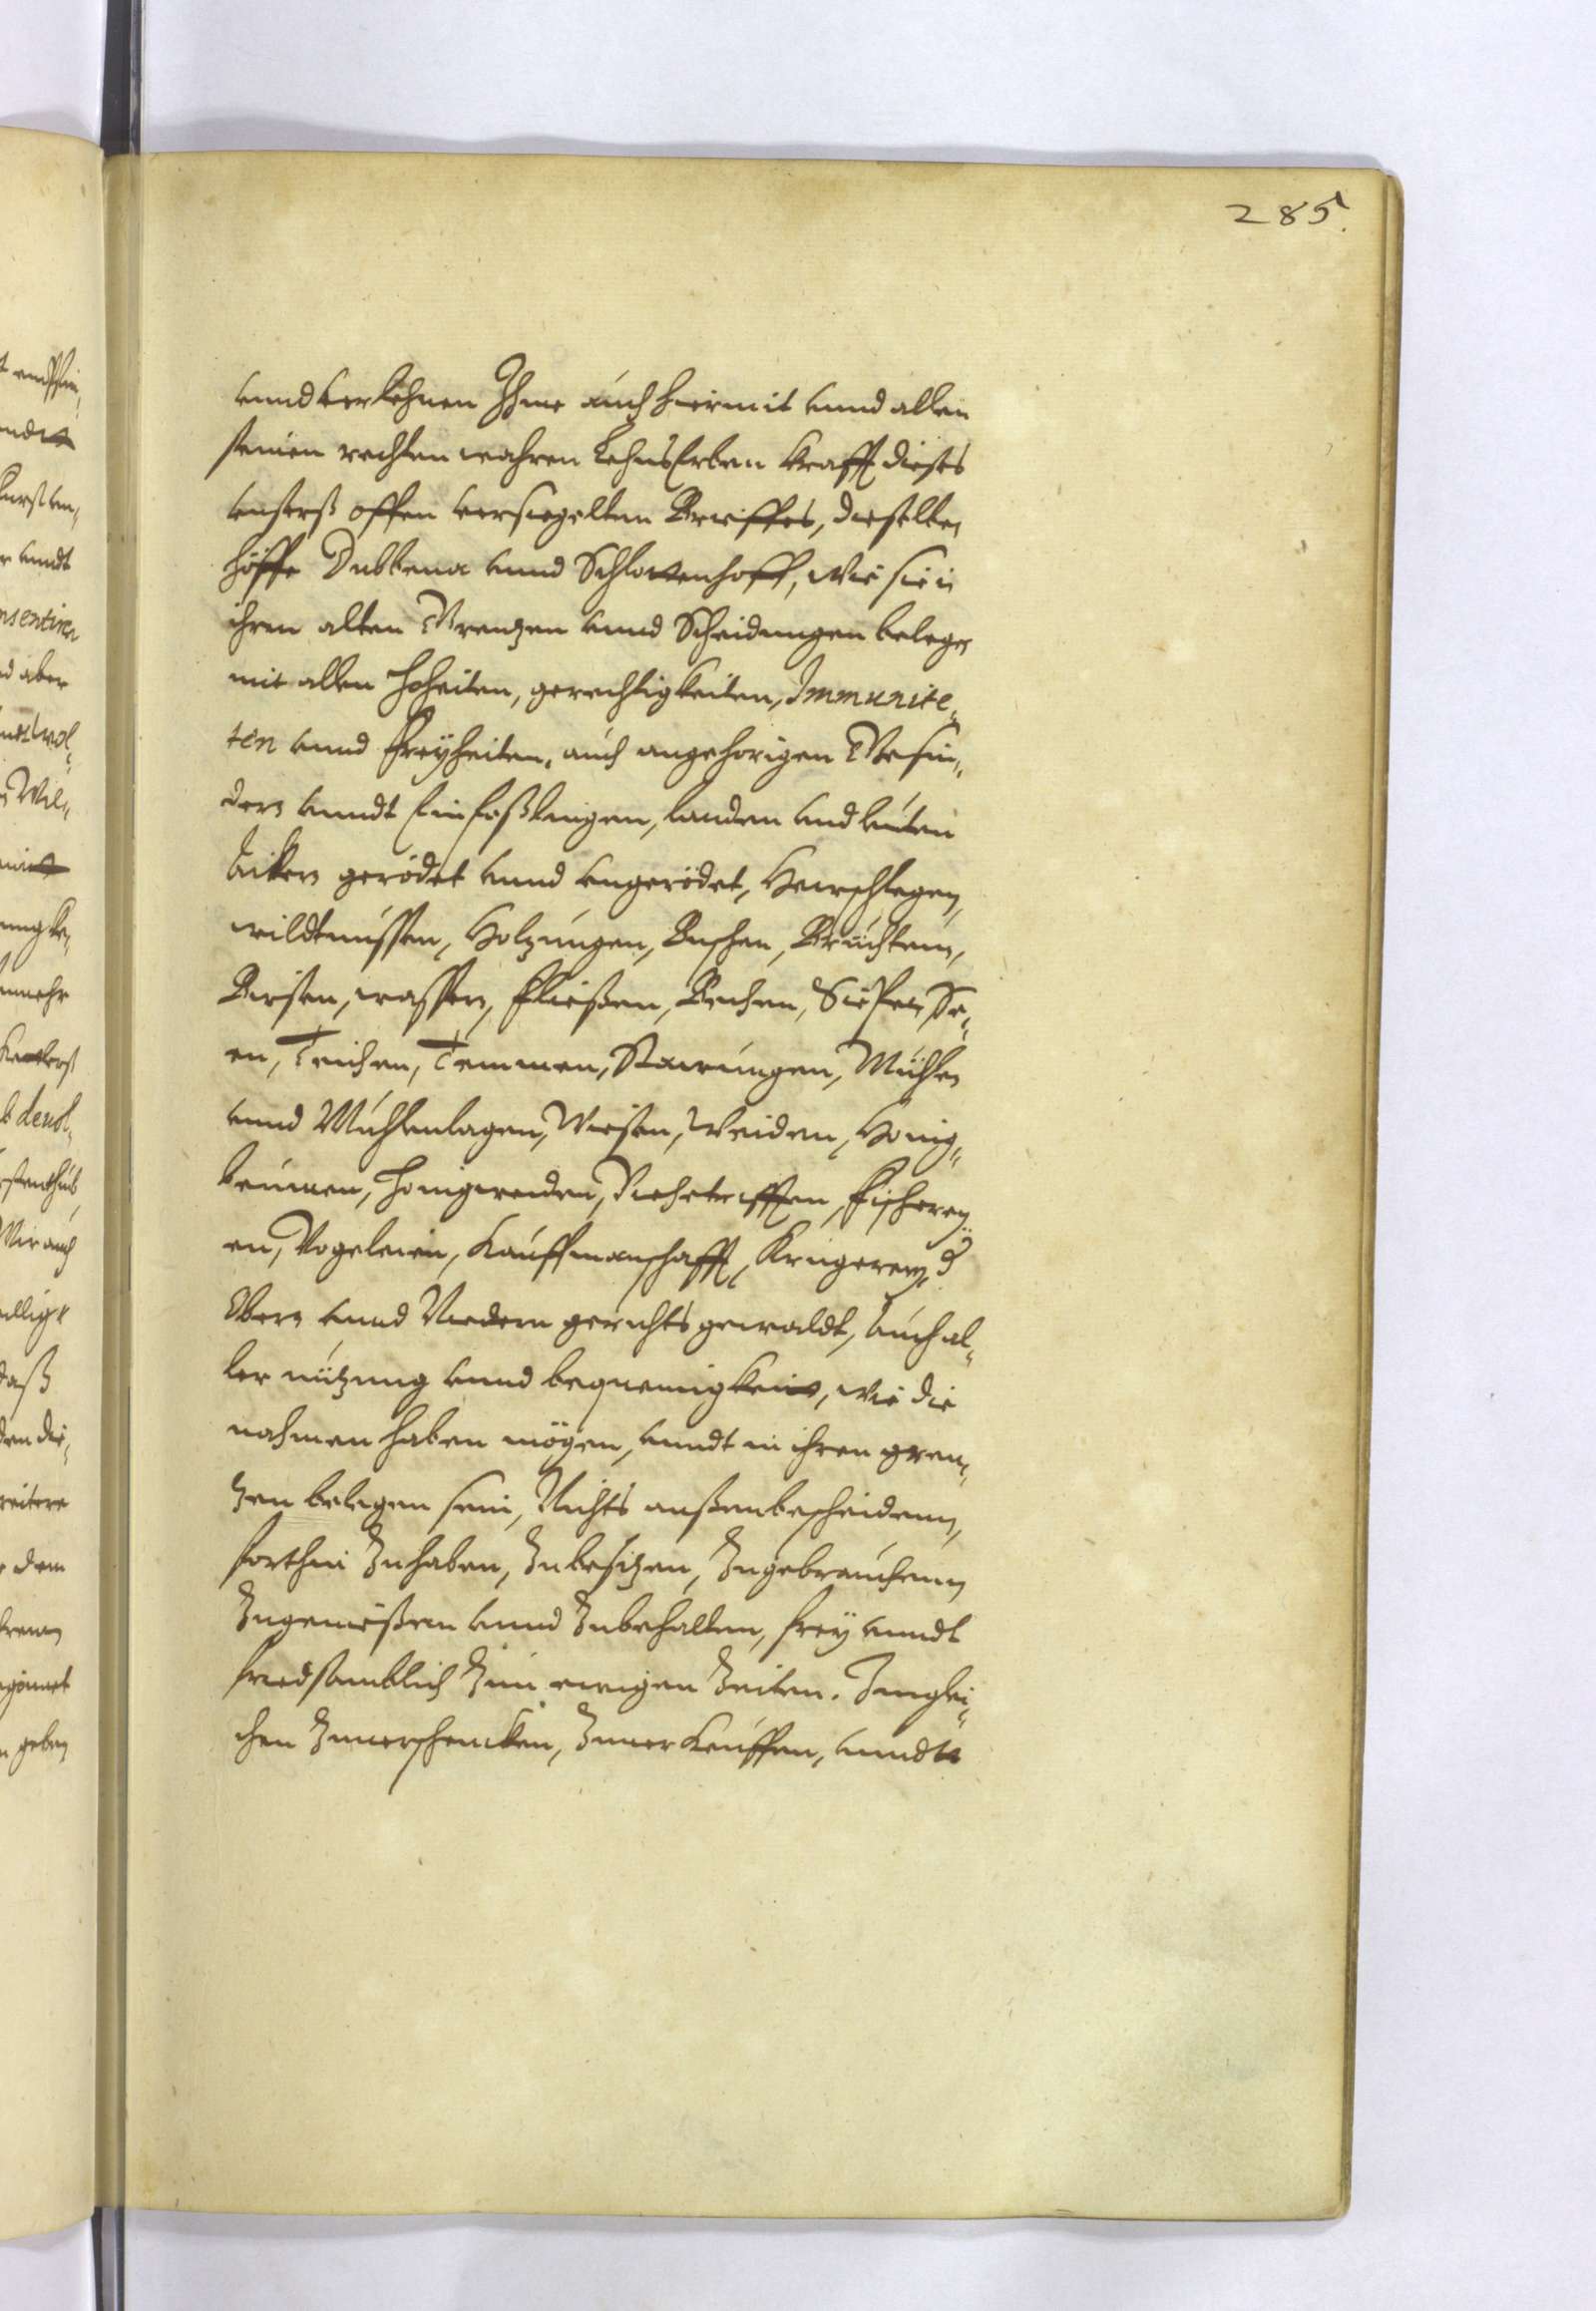 285.
vnnd verlehnen Ihme auch hiermit vnnd allen
seinen rechten wahren LehnsErben Krafft dieses
vnserß offen versiegelten Brieffes, dieselben
höffe Dubbena vnnd Schlottenhoff, wie sie in
ihren alten Grenzen vnnd Scheidungen belegen
mit allen Hoheiten, gerechtigkeiten, Immunite-
ten vnnd Freyheiten, auch angehorigen Gesin-
dern vnndt Einfoßlingen, landen vnd leuten
Äckern gerödet vnnd vngerödet, Heuschlegen,
wildtnüssen, Holzungen, Buschen, Brüchern,
Birsen, wassern, Fließen, Bechen, Siepen Se-
en, Teichen, Temmen, Stawungen, Mühlen
vnnd Mühlenlagen, Wiesen, Weiden, Honig-
beumen, Honigweiden, Viehetrifften, Fischerey-
en, Vogeleien, Kauffmanschafft, Krügereyen,
Obern vnnd Niedern gerichts gewaldt, Auch al-
ler nützung vnnd bequemigkeit, wie die
nahmen haben mögen, vnndt in ihren gren-
zen belegen sein, Nichts außenbescheidenn,
forthin Zuhaben, Zubesizen, Zugebrauchenn
Zugenießen vnnd Zubehalten, frey vnndt
friedsamblich Zun ewigen Zeiten. Imglei-
chen Zuuerschencken, Zuuerkeuffen, vnndt